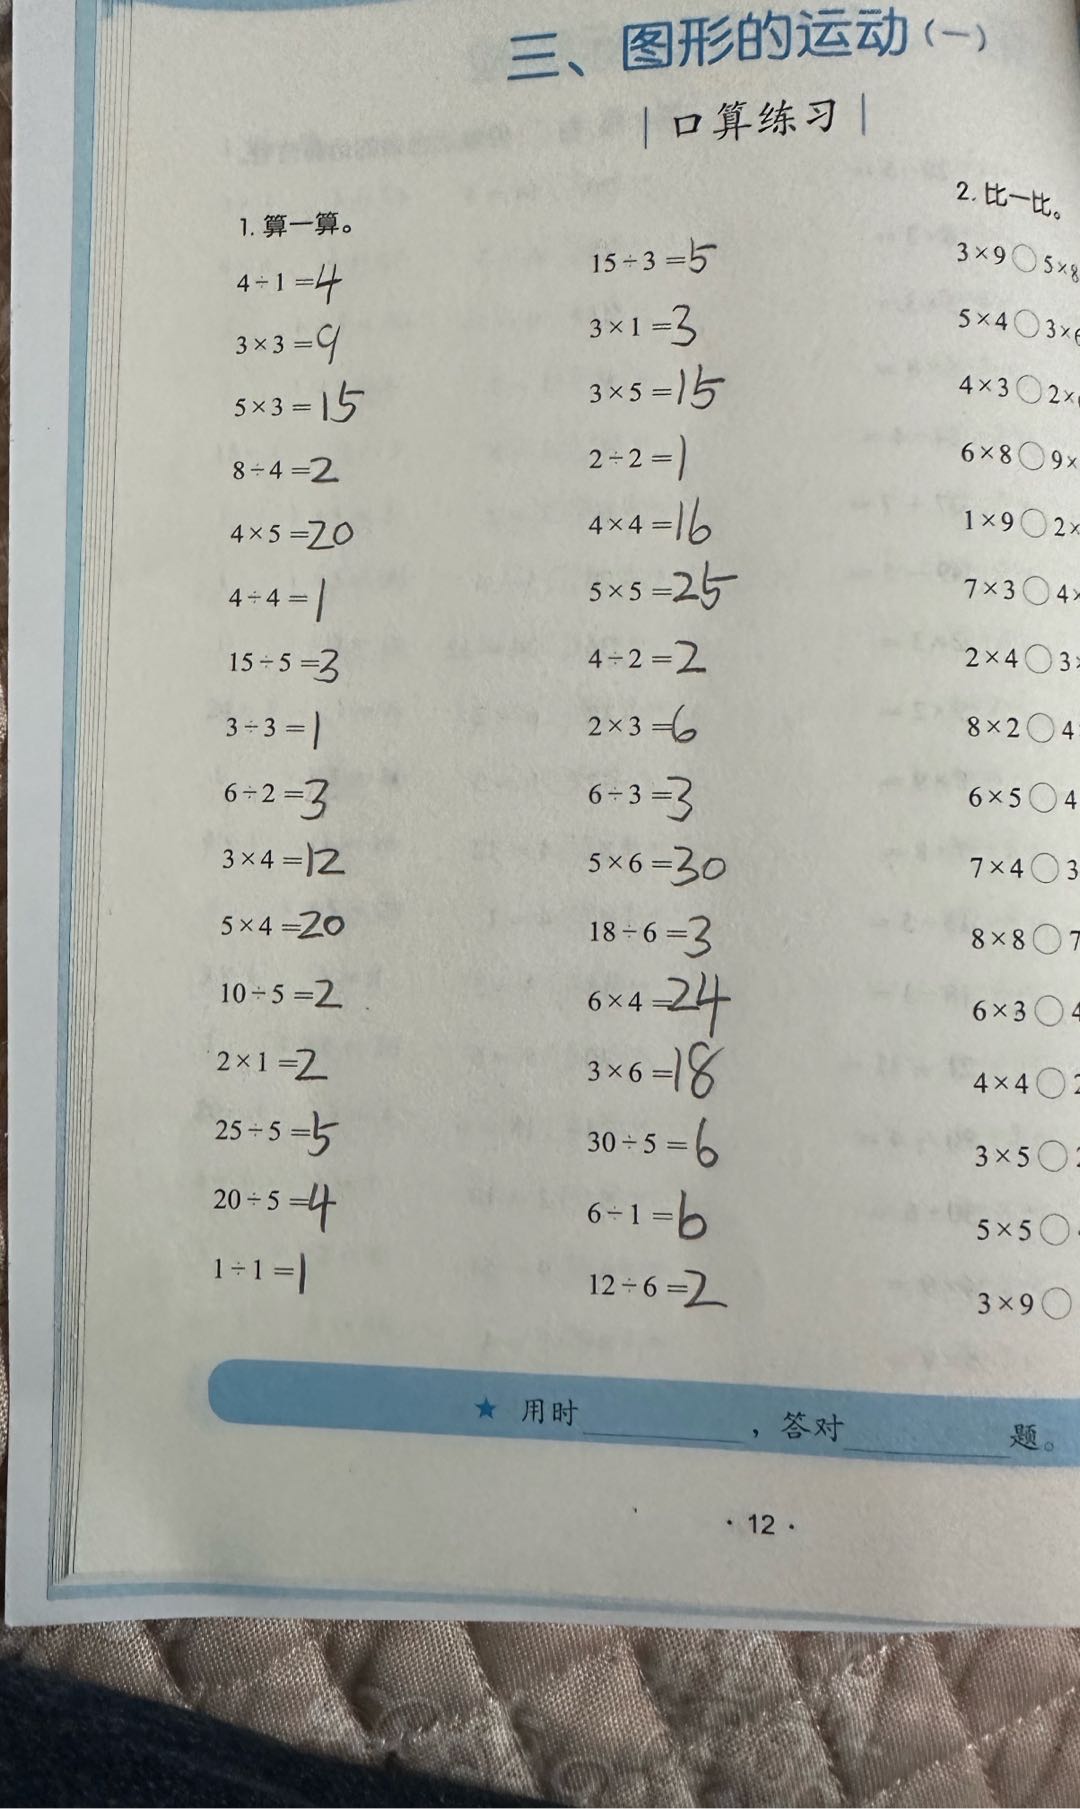 三、图形的运动(一)
口算练习
1. 算一算。
4÷1=4
3×3=9
5×3=15
8÷4=2
4×5=20
4÷4=1
15÷5=3
3÷3=1
6÷2=3
3×4=12
5×4=20
10÷5=2
2×1=2
25÷5=5
20÷5=4
1÷1=1
15÷3=5
3×1=3
3×5=15
2÷2=1
4×4=16
5×5=25
4÷2=2
2×3=6
6÷3=3
5×6=30
18÷6=3
6×4=24
3×6=18
30÷5=6
6÷1=6
12÷6=2
2. 比一比。
3×9○5×8
5×4○3×6
4×3○2×
6×8○9×
1×9○2×
7×3○4×
2×4○3×
8×2○4
6×5○4
7×4○3
8×8○7
6×3○4
4×4○2
3×5○2
5×5○
3×9○
★ 用时________，答对________题。
·12·